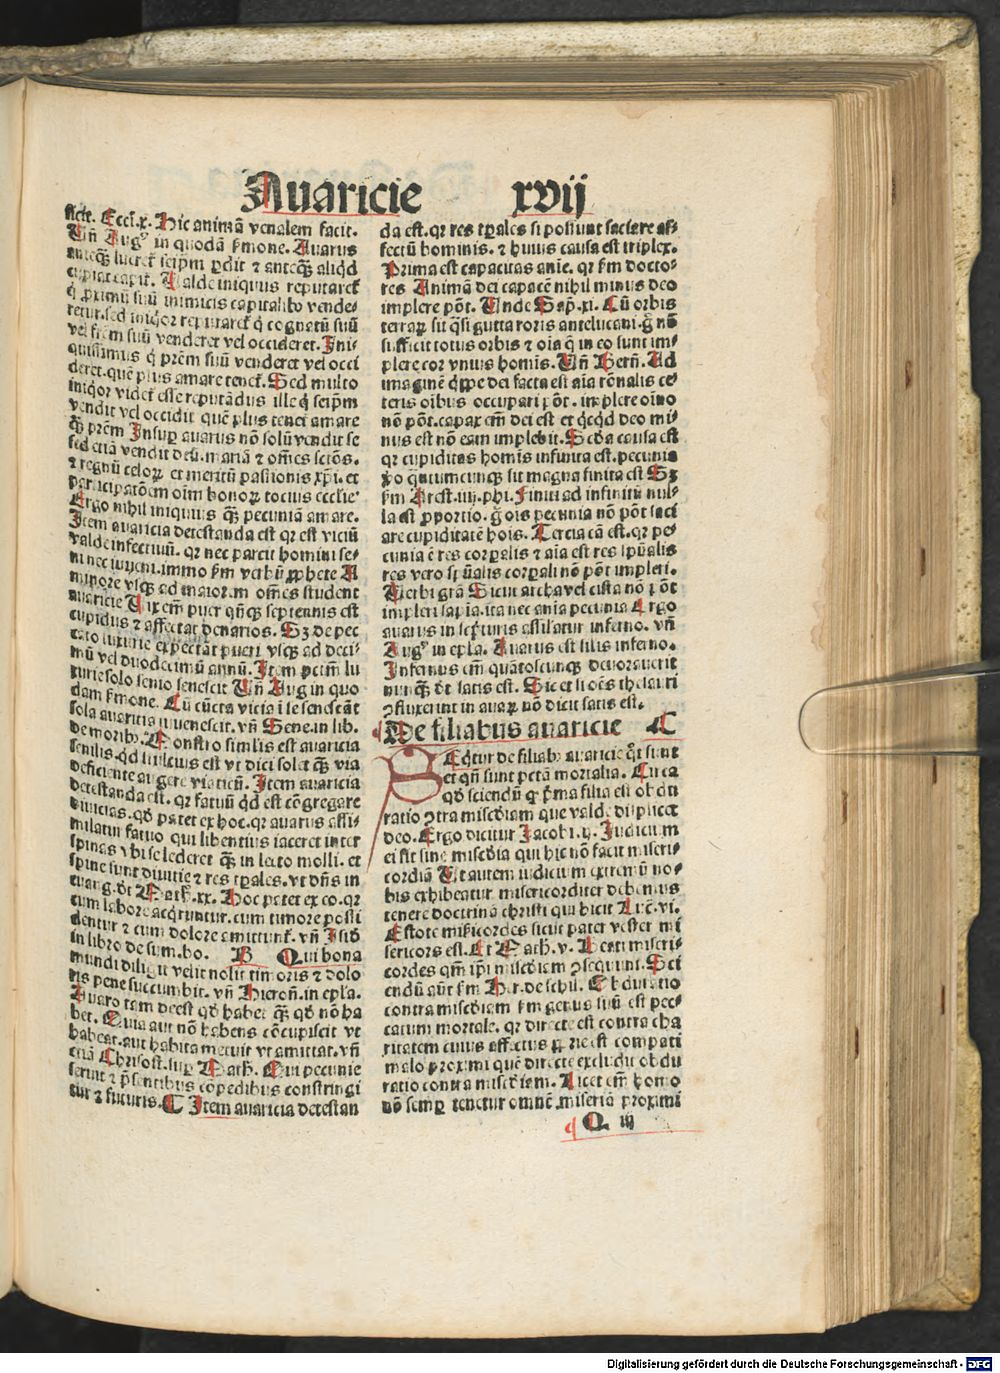 Auaricie xvij
scit̃. Eccl̓.x. Hic animã venalem facit.
Uñ Augꝰ in quodã s̃mone. Auarus
anteq̃ȝ lucret̃ seip̃m ꝑdit ⁊ anteq̃ȝ aliqd̓
cupiat capit̃. Ualde iniquus reputaret̃
q̓ ꝓximũ suũ inimicis capitalibꝰ vende-
ret ur. sed iniqor reputaret̃ q̓ cognatũ suũ
vel fr̃em suũ venderet vel occideret. Ini-
quissimus q̓ pr̃em suũ venderet vel occi
deret. quẽ plus amare tenet̃. Sed multo
iniqor videt̃ esse reputãdus ille q̓ seip̃m
vendit vel occidit quẽ plus tenet amare
q̃ȝ pr̃em Insuꝑ auarus nõ solũ vendit se
sed etiã vendit deũ. mariã ⁊ om̃es sctõs.
⁊ regnũ celoꝝ et meritũ passionis xp̃i. et
participatõem oim̃ bonoꝝ tocius eccl̃ie.
Ergo nihil iniquius q̃ȝ pecuniã amare.
Item auaricia detestanda est qr est viciũ
valde infectiuũ. qr nec parcit homini se-
ni nec iuueni. immo s̃m verbũ ꝓphete A
minore vsqȝ ad maiorem om̃es student
auaricie Uix em̃ puer qñqȝ septennis est
cupidus ⁊ affectat denarios. Sȝ de pec
cato luxurie expectãt pueri vsqȝ ad deci-
mũ vel duodecimũ annũ. Item pctm̃ lu
xurie solo senio senescit Uñ Aug in quo
dam s̃mone. Cũ cũcta vicia ĩ se senescãt
sola auaricia iuuenescit. vñ Sene. in lib.
de moribꝰ. Monstro similis est auaricia
senilis. qd̓ stulcius est vt dici solet q̃ȝ via
deficiente augere viaticũ. Item auaricia
detestanda est. qr fatuũ qd̓ est cõgregare
diuicias. qd̓ patet ex hoc. qr auarus assi-
milatur fatuo qui libentius iaceret inter
spinas vbi se lederet q̃ȝ in lecto molli. et
spine sunt diuitie ⁊ res tp̃ales. vt dñs in
euang. dt̓ Math̓.xx. Hoc patet ex eo. qr
cum labore acqruntur. cum timore possi
dentur ⁊ cum dolore amittunt̃. vñ Isid̓
in libro de sum.bo. B Qui bona
mundi diligit velit nolit timoris ⁊ dolo
ris pene succumbit. vñ Hieroñ. in ep̃la.
Auaro tam deest qd̓ habet q̃ȝ qd̓ nõ ha
bet. Quia aut nõ habens cõcupiscit vt
habeat. aut habita metuit vt amittat. vñ
etiã Chrisost. suꝑ Math̓. Qui pecunie
seruit ⁊ p̃sentibus cõpedibus constringi
tur ⁊ futuris. C Item auaricia detestan
da est. qr res tp̃ales nõ possunt saciare af-
fectũ hominis. ⁊ huius causa est triplex.
Prima est capacitas anie. qr s̃m docto-
res Animã dei capacẽ nihil minus deo
implere põt. Unde Sap̃.xi. Cũ orbis
terraꝝ sit q̃si gutta roris antelucani. g̃ nõ
sufficit totus orbis ⁊ oĩa q̃ in eo sunt im-
plere cor vnius homĩs. Uñ Bern̓. Ad
imaginẽ qip̃pe dei facta est aĩa rõnalis ce
teris oĩbus occupari põt. implere oĩno
nõ põt. capax em̃ dei est et qcqd̓ deo mi-
nus est nõ eam implebit. Scd̓a causa est
qr cupiditas homĩs infinita est. pecunia
ꝟo q̃ntumcunqȝ sit magna finita est Sȝ
s̃m Arest. iiij. phi. Finiti ad infinitũ nul-
la est ꝓportio. g̃ oĩs pecunia nõ põt saci
are cupiditatẽ hoĩs. Tercia cã est. qr pe-
cunia ẽ res corꝑalis ⁊ aĩa est res sp̃ualis
res vero sp̃ualis corꝑali nõ põt impleri.
Uerbi grã Sicut archa vel cista nõ põt
impleri sapĩa. ita nec anĩa pecunia Ergo
auarus in sc̓pturis assilatur inferno. vñ
Augꝰ in ep̃la. Auarus est silis inferno.
Infernus em̃ quãtoscunqȝ deuorauerit
nunq̃ȝ dt̓ satis est. Sic et si oẽs thesauri
ꝯfluxerint in auarũ nõ dicit satis est.
De filiabus auaricie C
SEq̃tur de filiabꝰ auaricie q̃t sunt
et qñ sunt pctã mortalia. Circa
qd̓ sciendũ ꝙ p̃ma filia est obdu
ratio ꝯtra misc̓diam que valde displicet
deo. Ergo dicitur Jacobi.ij. Judicium
ei fit sine misc̓dia qui hic nõ facit miseri-
cordiã Ut autem iudicium extremũ no-
bis exhibeatur misericorditer debemus
tenere doctrinã christi qui dicit Luc̃.vi.
Estote misẽricordes sicut pater vester mi
sericors est. Et Math̓.v. Beati miseri-
cordes qm̃ ip̃i misc̓diam ꝯsequũt. Sci
endũ aũt s̃m Her. de schil. Obduratio
contra misc̓diam s̃m genus suũ est pec-
catum mortale. qr directe est contra cha
ritatem cuius affectus ꝓprie est compati
malo proximi quẽ directe excludit obdu
ratio contra misc̓diam. Licet em̃ homo
nõ semꝑ tenetur omnẽ miseriã proximi
Q iij
Digitalisierung gefördert durch die Deutsche Forschungsgemeinschaft - DFG